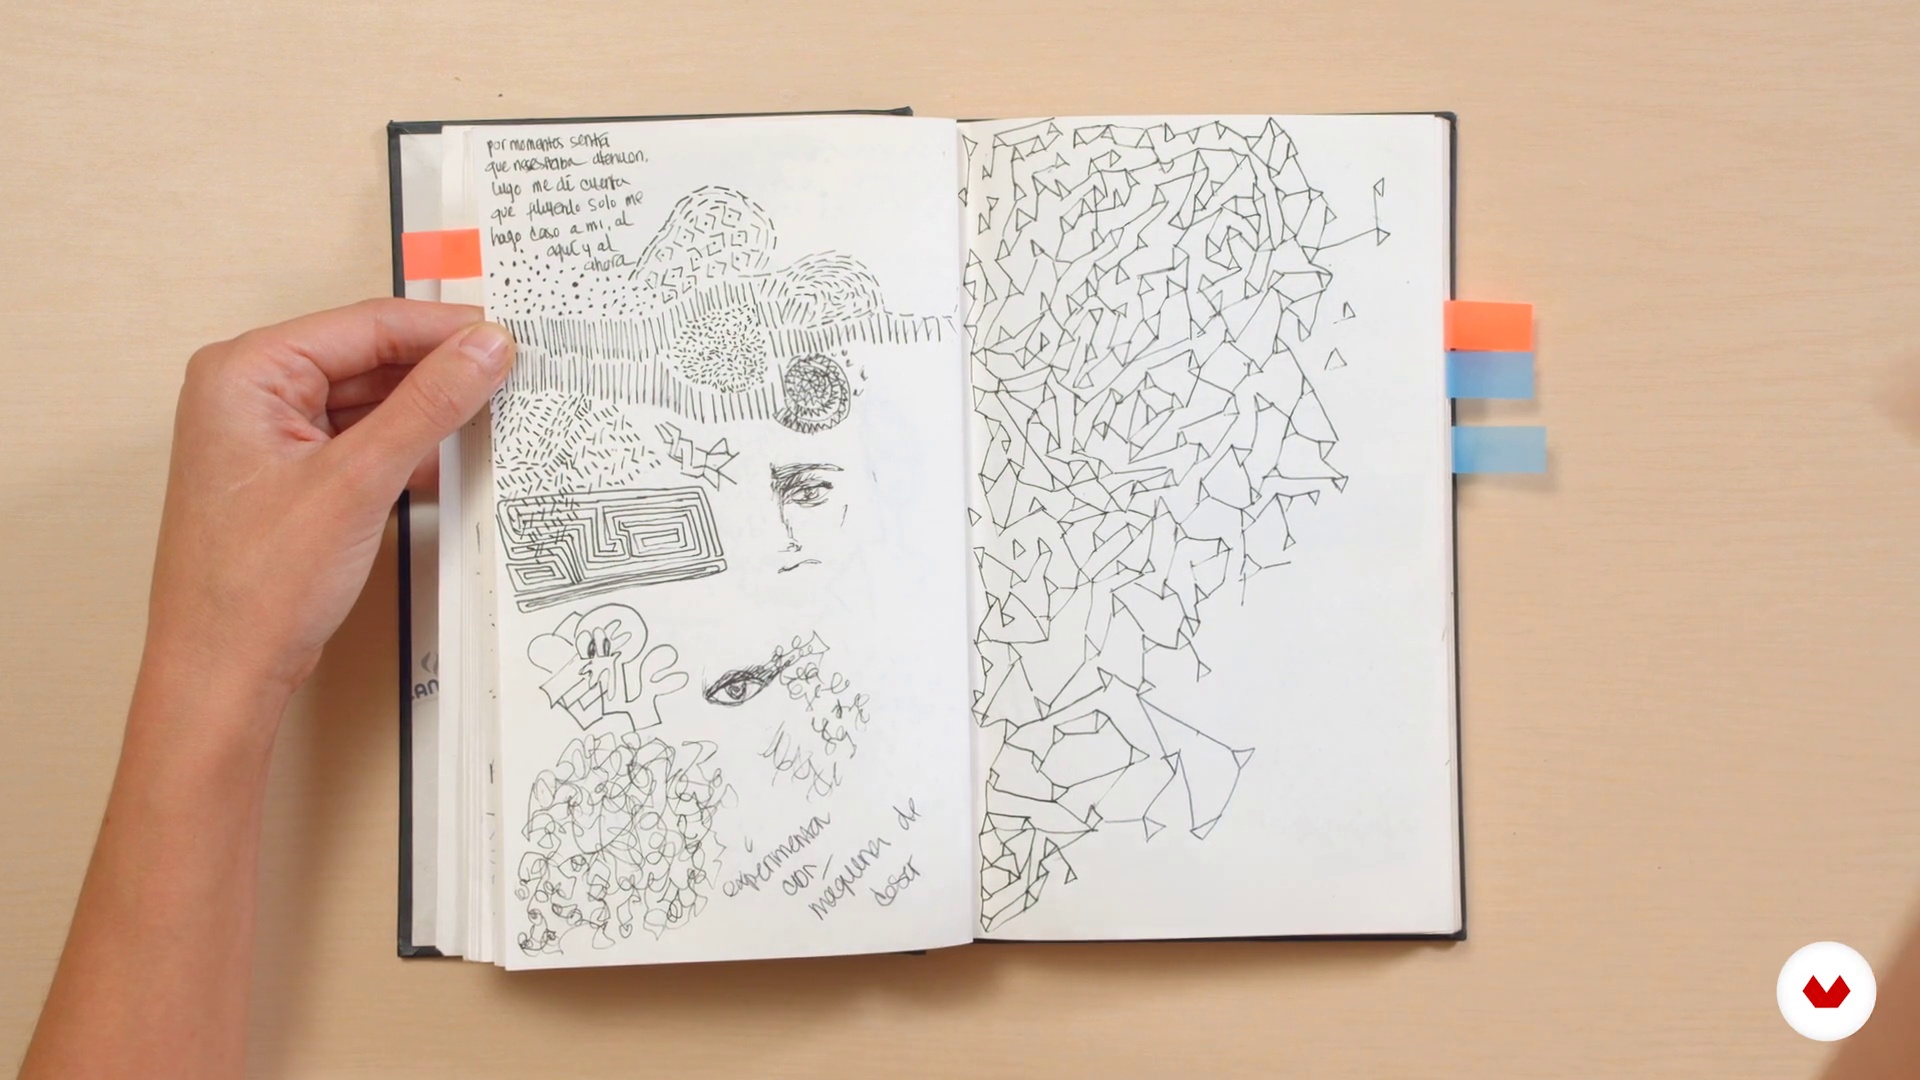 por momentos sentía
que necesitaba atencion.
luego me di cuenta
que fluyendo solo me
hago caso a mi, al
aquí y al
ahora
experimentar
con
maquina de
coser
CAN